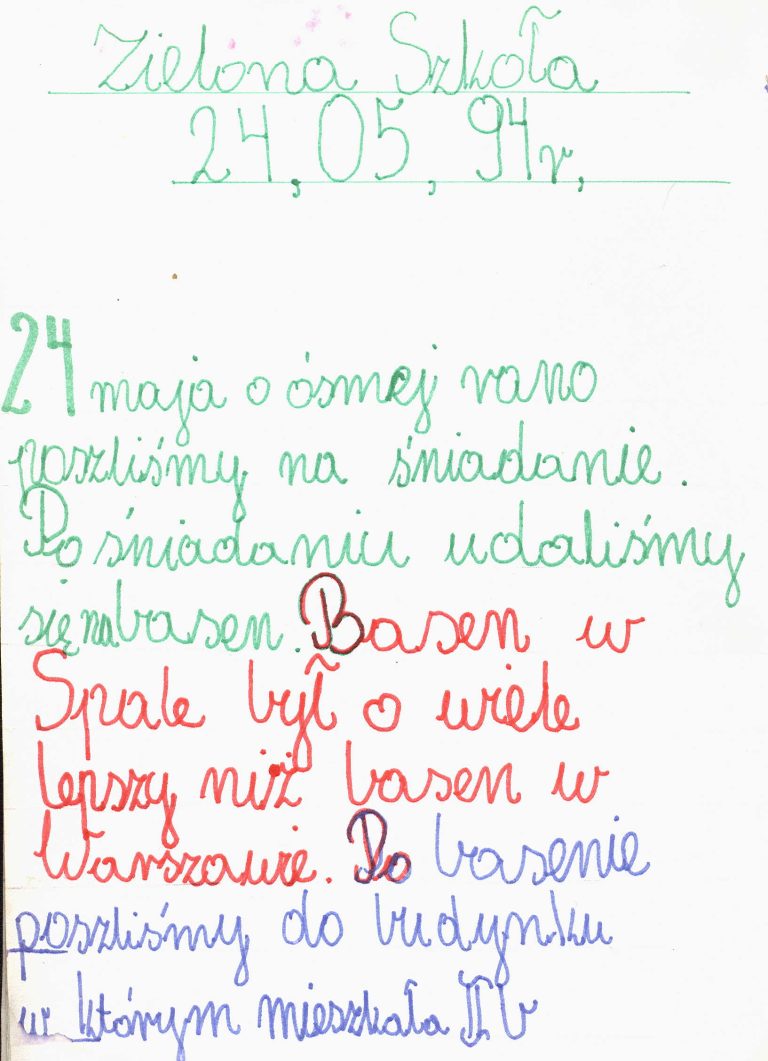 Zielona Szkoła
24,05,94r,
24 maja o ósmej rano
poszliśmy na śniadanie.
Po śniadaniu udaliśmy
się na basen. Basen w
Spale był o wiele
lepszy niż basen w
Warszawie. Po basenie
poszliśmy do budynku
w którym mieszkała II b